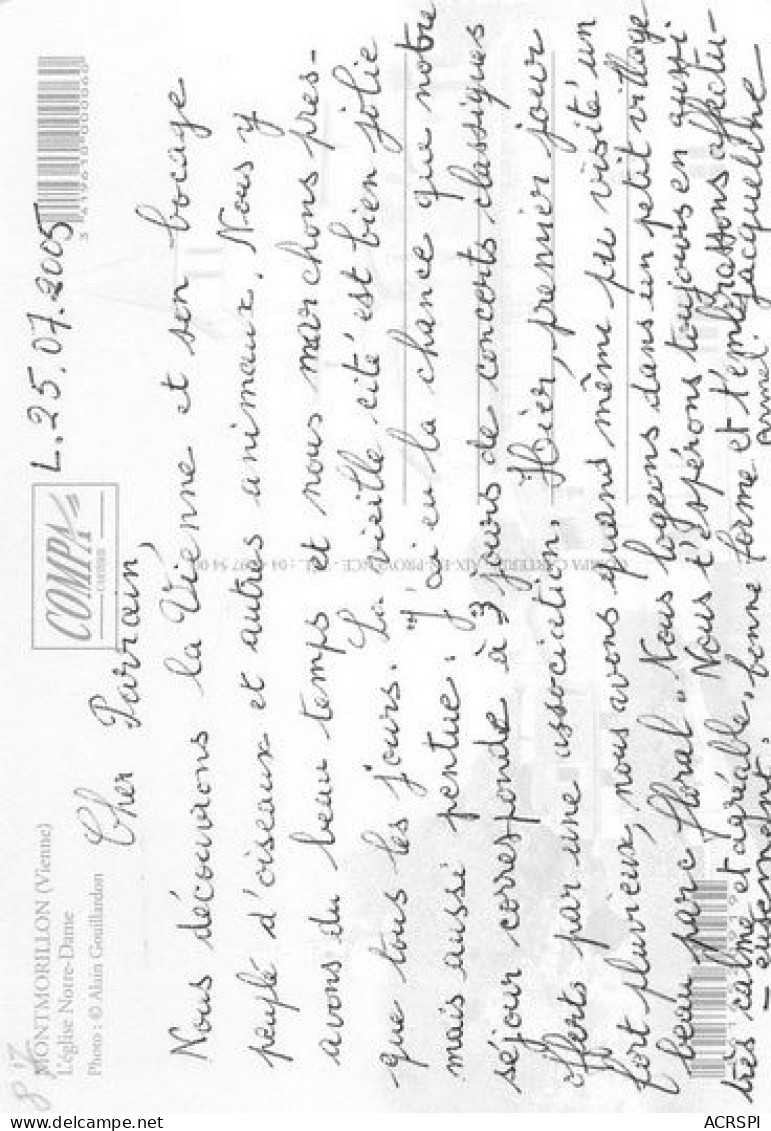 MONTMORILLON (Vienne)
L'église Notre-Dame
Photo : © Alain Gouillardon
COMPA
CARTERIE
L. 25.07.2005
3 419610 000060
Cher Parrain,
Nous découvrons la Vienne et son bocage
peuplé d'oiseaux et autres animaux. Nous y
avons du beau temps et nous marchons pres-
que tous les jours. La vieille cité est bien jolie
mais aussi pentue. J'ai eu la chance que notre
séjour corresponde à 3 jours de concerts classiques
offerts par une association. Hier, premier jour
fort pluvieux, nous avons quand même pu visité un
beau parc floral. Nous logeons dans un petit village
très calme et agréable. Nous t'espérons toujours en aussi
bonne forme et t'embrassons affectu-
eusement.
Jacqueline
COMPA CARTERIE - AIX-EN-PROVENCE - TÉL. : 04 97 54 00
ACRSPI